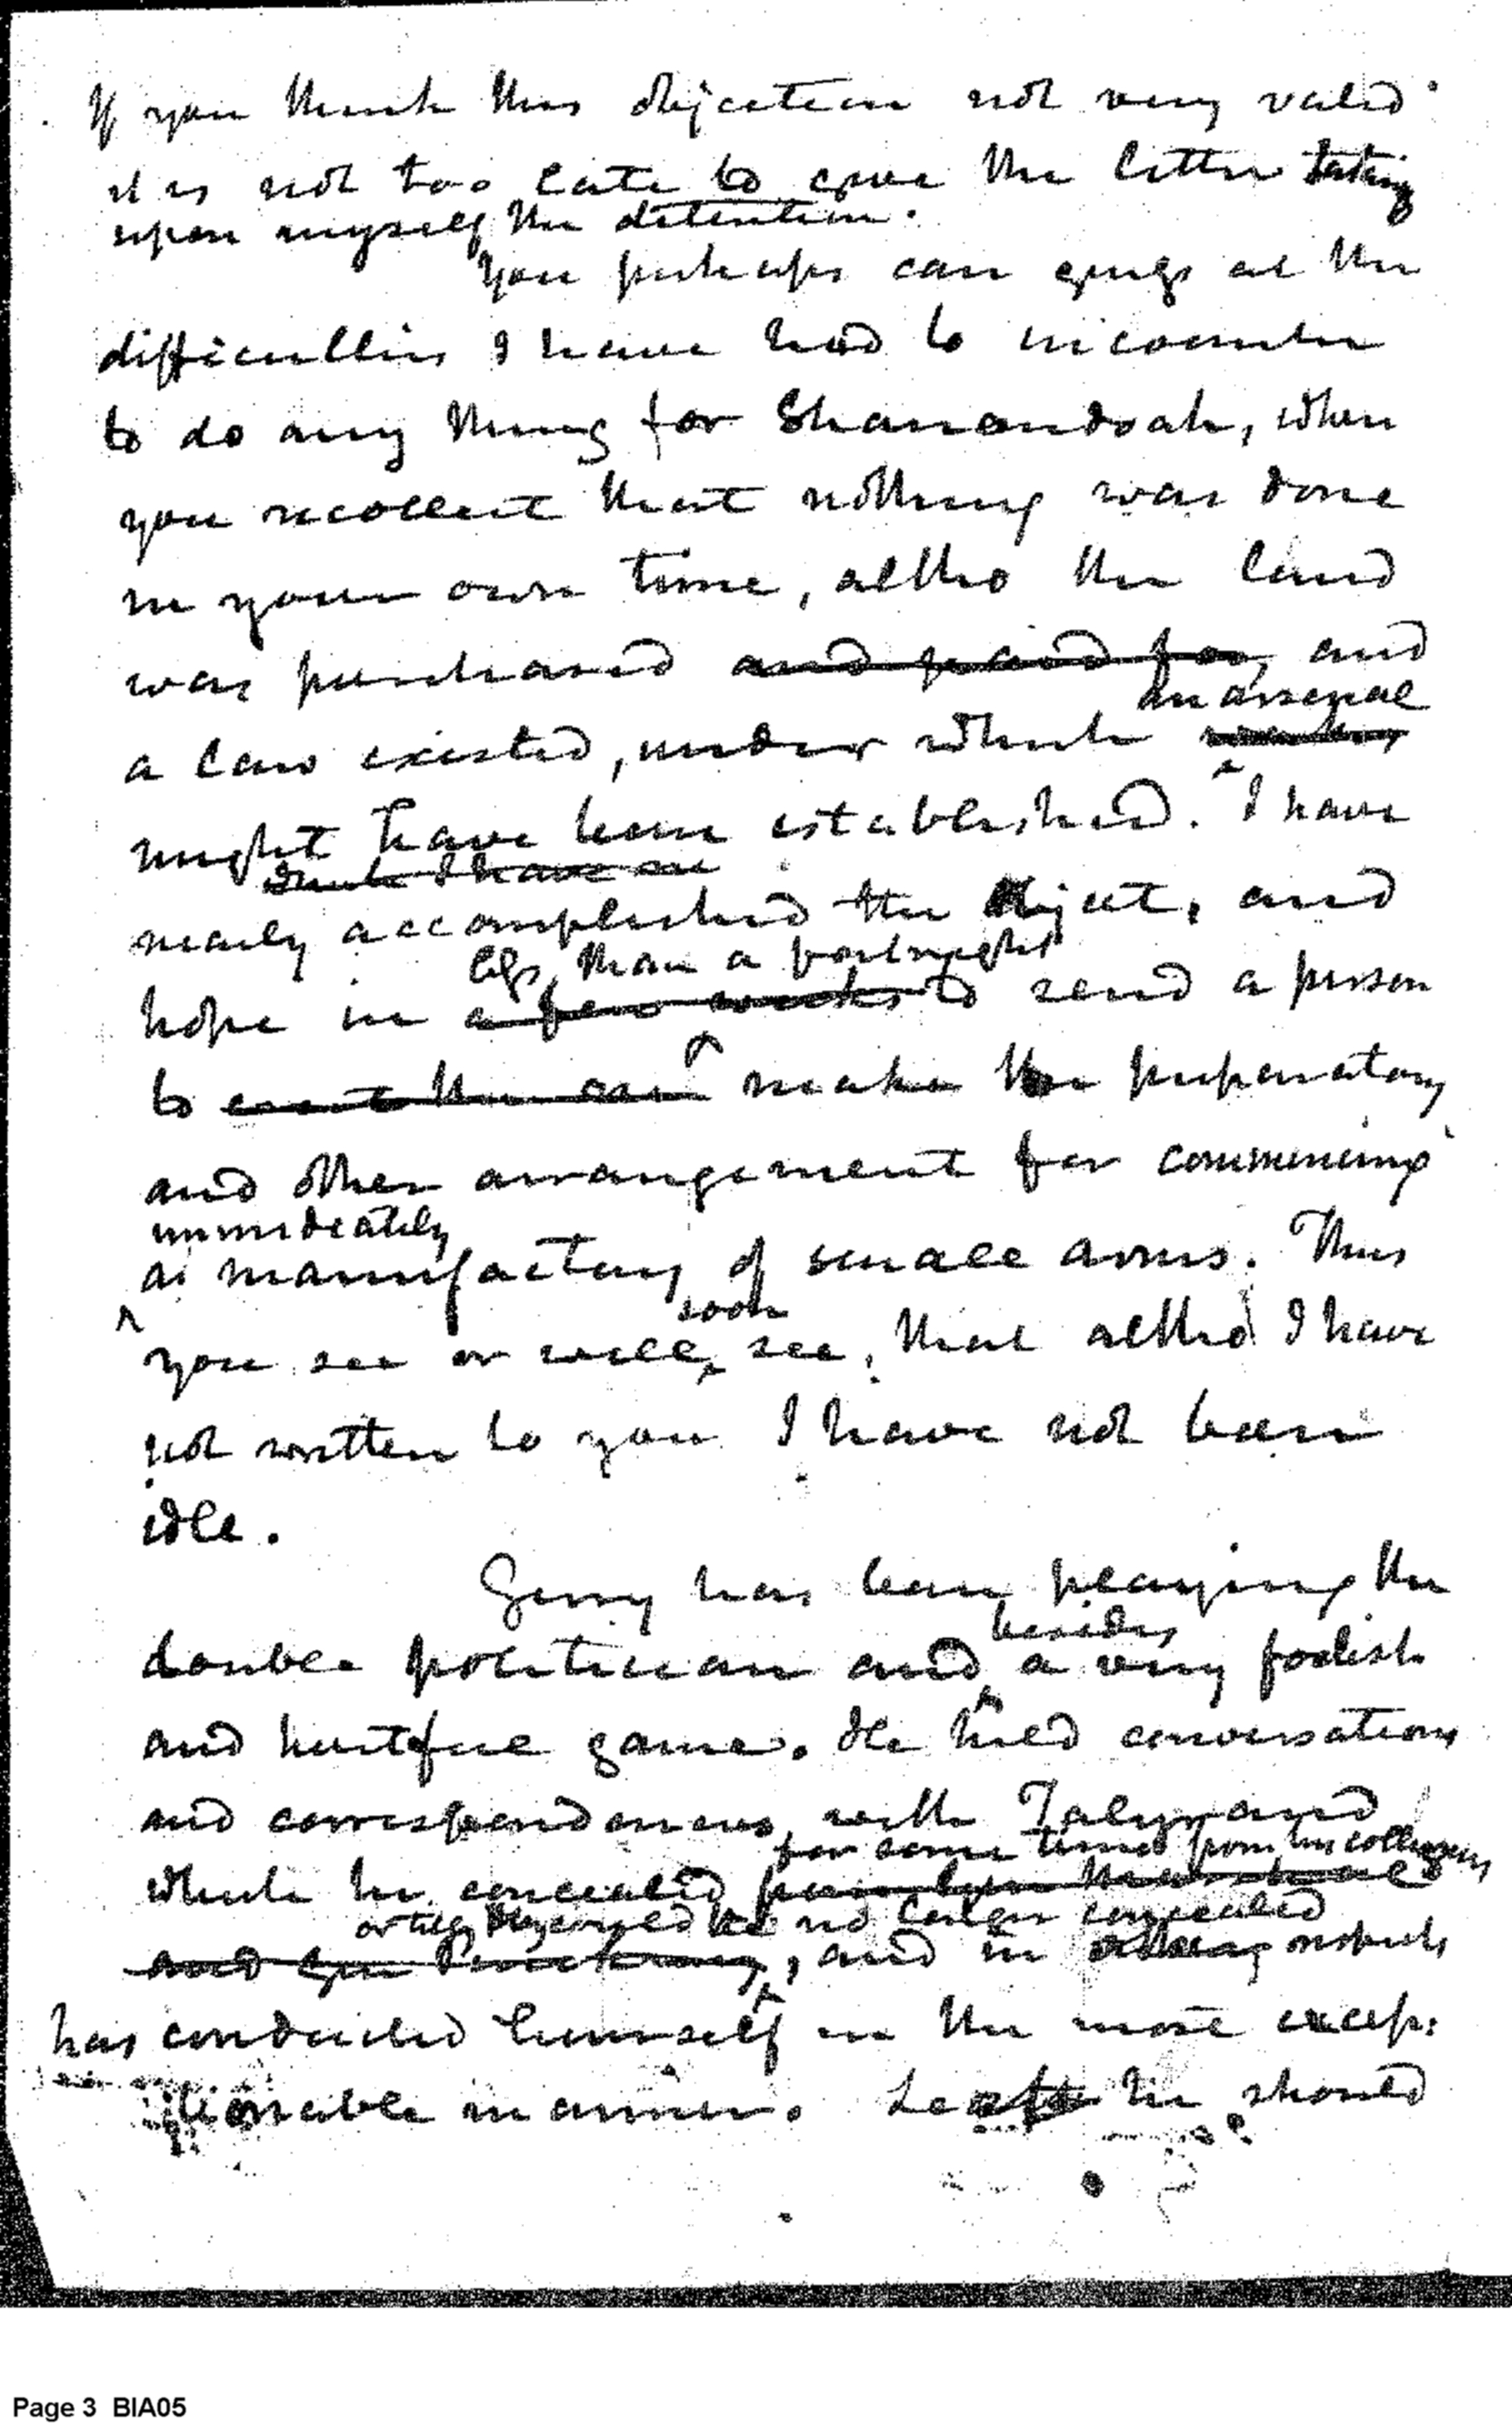 If you think this objection not very valid
it is not too late to give the letter taking
upon myself the detention.
You perhaps can guess at the
difficulties I have had to incounter
to do any thing for Shanandoah, when
you recollect that nothing was done
in your own time, altho the land
was purchased and paid for, and
an arsenal
a law existed, under which
might have been established. I have
think I have
nearly accomplished the object, and
less than a fortnight
hope in a few weeks to send a person
to make the preparatory
and other arrangement for commencing
immediately
a manufactory of small arms. Thus
soon
you see or will see, that altho I have
not written to you I have not been
idle.
Gerry has been playing the
besides
double politician and a very foolish
and hurtful game. He held conversations
and correspondences with Talyrand
for some time from his colleagues,
which he concealed
or till they could be no longer concealed
and Gen Pinckney, and in other respects
has conducted himself in the most excep:
tionable manner. Lest he should
Page 3 BIA05